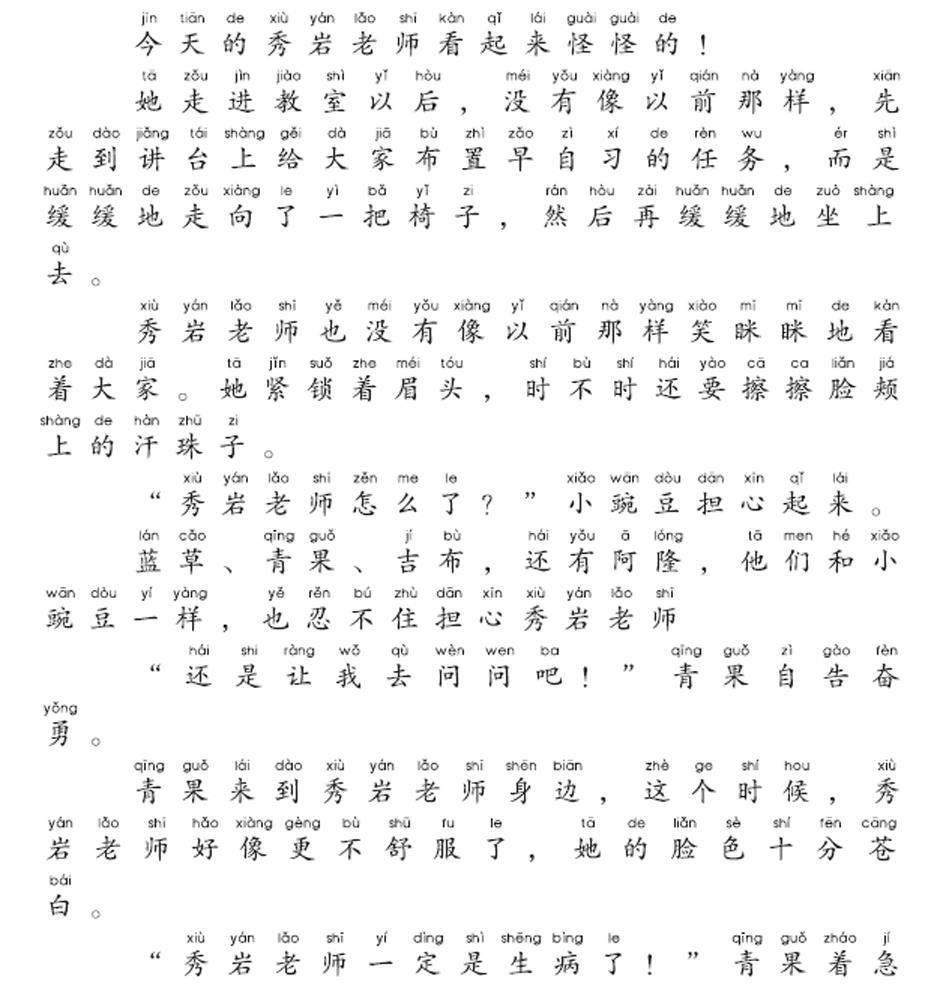 jīn tiān de xiù yán lǎo shī kàn qǐ lái guài guài de
今天的秀岩老师看起来怪怪的！
tā zǒu jìn jiào shì yǐ hòu méi yǒu xiàng yǐ qián nà yàng xiān
她走进教室以后，没有像以前那样，先
zǒu dào jiǎng tái shàng gěi dà jiā bù zhì zǎo zì xí de rèn wu ér shì
走到讲台上给大家布置早自习的任务，而是
huǎn huǎn de zǒu xiàng le yì bǎ yǐ zi rán hòu zài huǎn huǎn de zuò shàng
缓缓地走向了一把椅子，然后再缓缓地坐上
qù
去。
xiù yán lǎo shī yě méi yǒu xiàng yǐ qián nà yàng xiào mī mī de kàn
秀岩老师也没有像以前那样笑眯眯地看
zhe dà jiā tā jǐn suǒ zhe méi tóu shí bù shí hái yào cā ca liǎn jiá
着大家。她紧锁着眉头，时不时还要擦擦脸颊
shàng de hàn zhū zi
上的汗珠子。
xiù yán lǎo shī zěn me le xiǎo wān dòu dān xīn qǐ lái
“秀岩老师怎么了？”小豌豆担心起来。
lán cǎo qīng guǒ jí bù hái yǒu ā lóng tā men hé xiǎo
蓝草、青果、吉布，还有阿隆，他们和小
wān dòu yí yàng yě rěn bú zhù dān xīn xiù yán lǎo shī
豌豆一样，也忍不住担心秀岩老师
hái shi ràng wǒ qù wèn wen ba qīng guǒ zì gào fèn
“还是让我去问问吧！”青果自告奋
yǒng
勇。
qīng guǒ lái dào xiù yán lǎo shī shēn biān zhè ge shí hou xiù
青果来到秀岩老师身边，这个时候，秀
yán lǎo shī hǎo xiàng gèng bù shū fu le tā de liǎn sè shí fēn cāng
岩老师好像更不舒服了，她的脸色十分苍
bái
白。
xiù yán lǎo shī yí dìng shì shēng bìng le qīng guǒ zháo jí
“秀岩老师一定是生病了！”青果着急